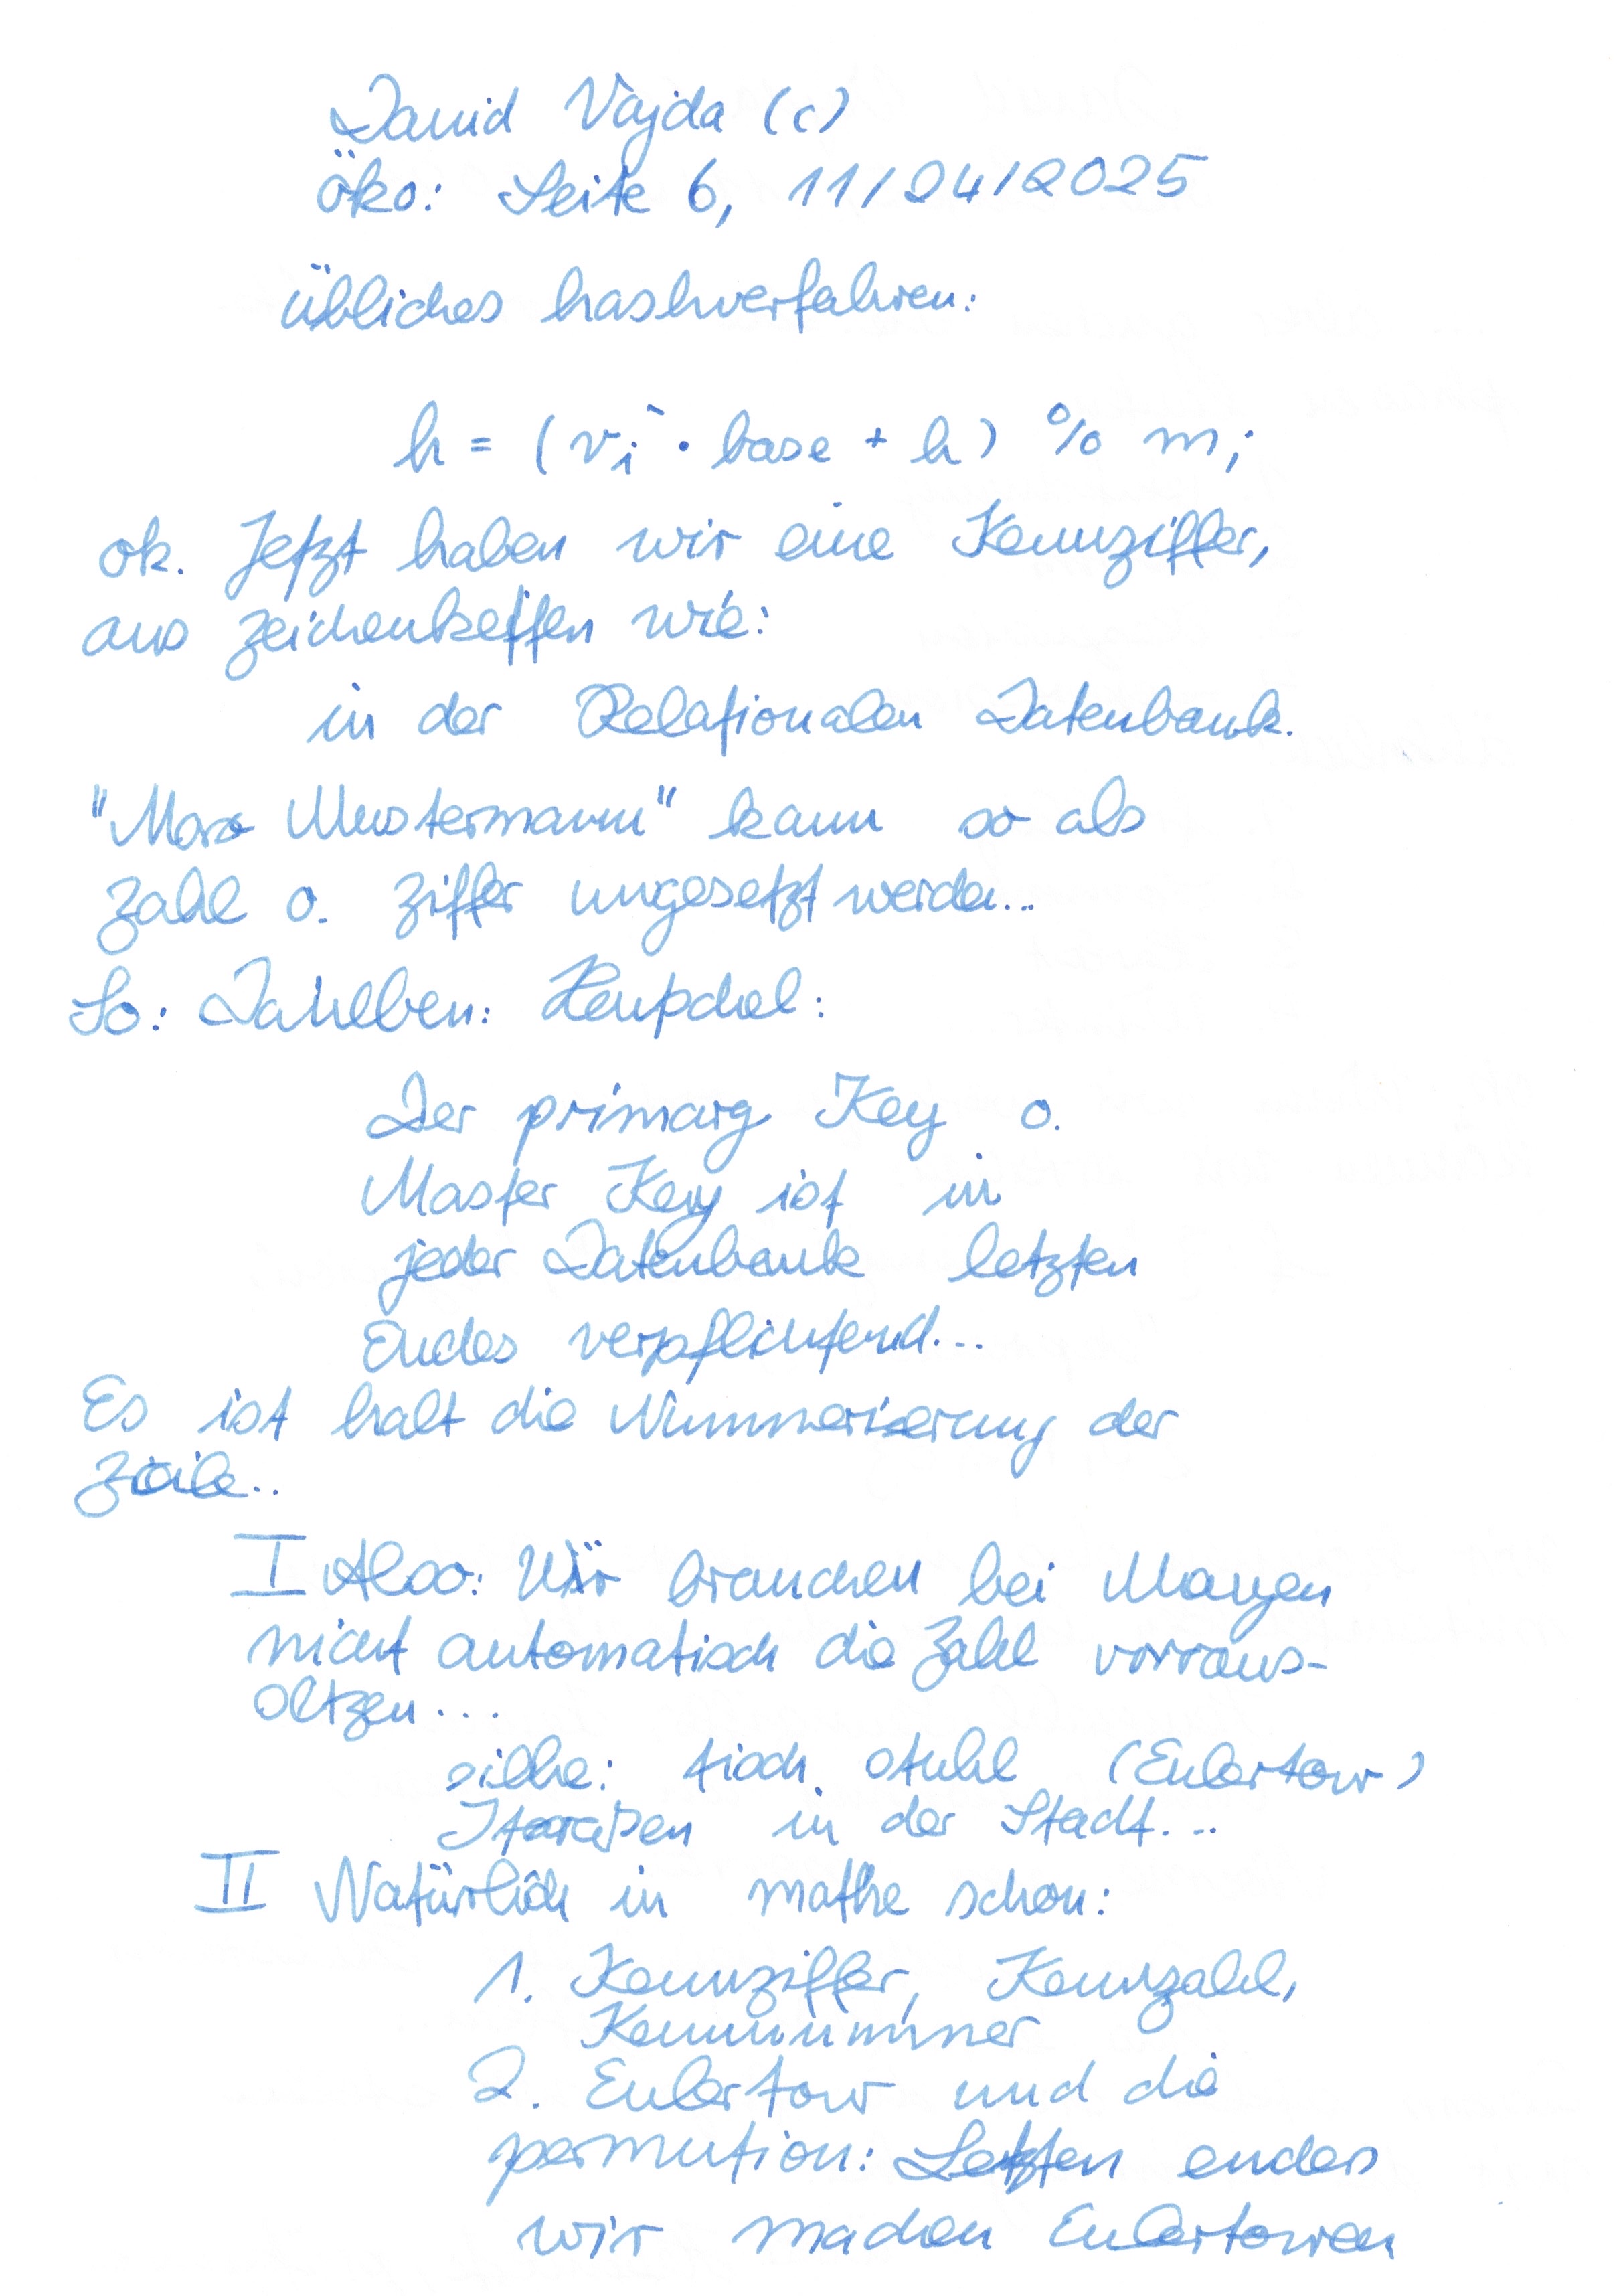 David Vajda (c)
öko: Seite 6, 11/04/2025
übliches hashverfahren:
h = (vi · base + h) % m;
ok. Jetzt haben wir eine Kennziffer,
aus zeichenketten wie:
in der Relationalen Datenbank.
"Max Mustermann" kann so als
Zahl o. Ziffer umgesetzt werden..
So: Daneben:
Der primary Key o.
Master Key ist in
jeder Datenbank letzten
Endes verpflichtend...
Es ist halt die Nummerierung der
Zeile..
I Also: Wir brauchen bei Mengen
nicht automatisch die Zahl vorraus-
setzen...
siehe: tisch, stuhl (Eulertour)
Straßen in der Stadt...
II Natürlich in mathe schon:
1. Kennziffer, Kennzahl,
Kennnummer
2. Eulertour und die
permution: Letzten endes
wir machen Eulertouren